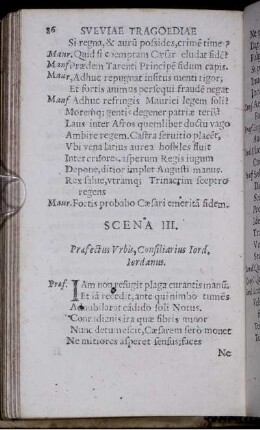 86 SVEVIAE TRAGOEDIAE
Si regna, & aurũ possides, crimẽ time?
Maur. Quid si exemptam Cæsar eludat fidẽ?
Manf Prædem Tarenti Principẽ fidum capis.
Maur, Adhuc repugnat insitus menti rigor;
Et fortis animus persequi fraudẽ negat
Manf Adhuc refringis Maurici legem soli?
Moremq; gentis degener patriæ teris?
Laus inter Astros quemlibet ductu vago
Ambire regem. Castra seruitio placẽt,
Vbi vena latius aurea hostiles fluit
Inter asperum Regis iugum
Depone, ditior implet Augusti manus.
Rex salue, vtramq; Trinacrim sceptro
regens
Maur. Fortis probabo Cæsari emeritã fidem.
SCENA III.
Præfectus Vrbis, Consiliarius Iord,
Iordanus.
Præf. IAm non refugit plaga curantis manũ,
Et iã recedit, ante qui nimbo tumẽs
Adnubilarat cãdido soli Notus.
ira quæ fibris minor
Nunc detumescit, Cæsarem serò monet
Ne mitiores asperet sensus; faces
Ne